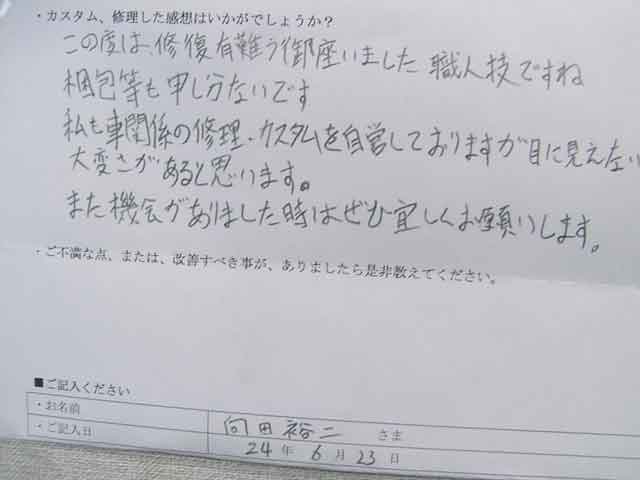 ・カスタム、修理した感想はいかがでしょうか？
この度は、修復有難う御座いました 職人技ですね
梱包等も申し分ないです
私も車関係の修理・カスタムを自営しておりますが目に見えない
大変さがあると思います。
また機会がありました時はぜひ宜しくお願いします。
・ご不満な点、または、改善すべき事が、ありましたら是非教えてください。
■ご記入ください
・お名前 向田裕二 さま
・ご記入日 24年 6月 23日